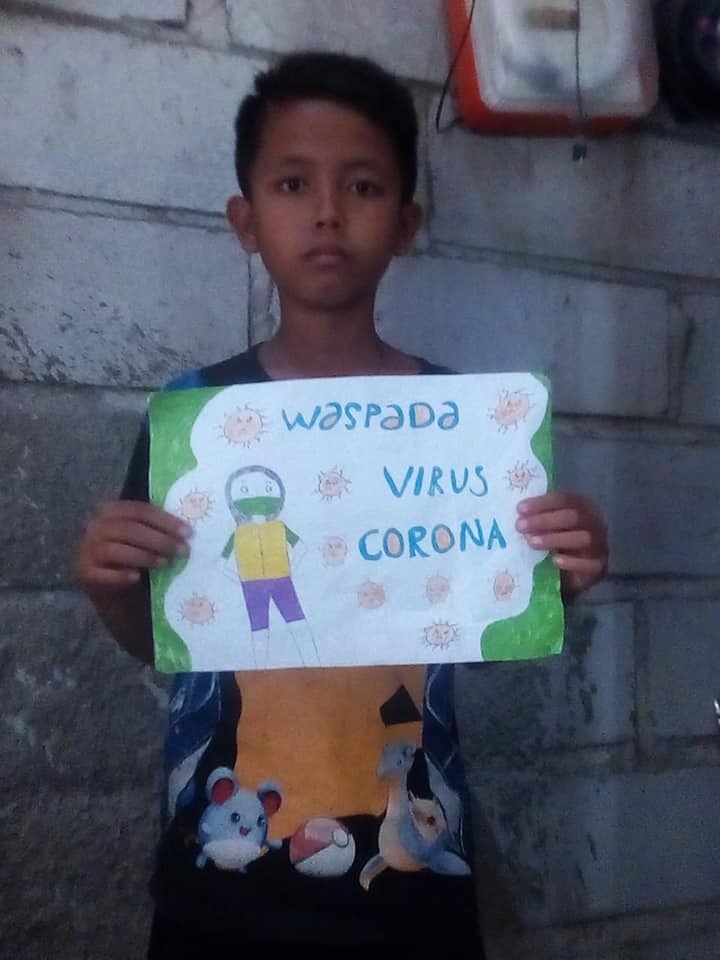 WASPADA
VIRUS
CORONA